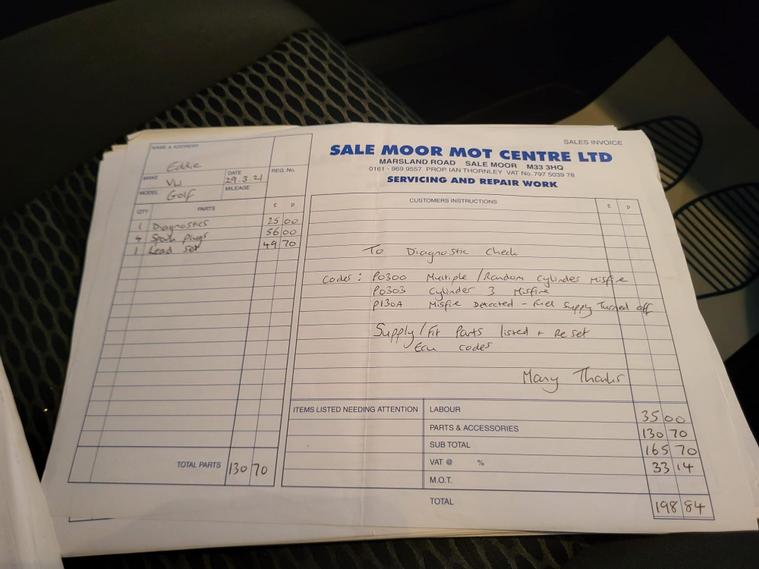 SALES INVOICE
SALE MOOR MOT CENTRE LTD
MARSLAND ROAD SALE MOOR M33 3HQ
0161 - 969 9557 PROP. IAN THORNLEY VAT No. 797 5039 78
SERVICING AND REPAIR WORK
NAME & ADDRESS
Eddie
MAKE VW DATE 29.3.21 REG. No.
MODEL Golf MILEAGE
QTY PARTS £ P
1 Diagnostics 25 00
4 Spark plugs 56 00
1 Lead set 49 70
TOTAL PARTS 130 70
CUSTOMERS INSTRUCTIONS £ P
To Diagnostic Check
Codes : P0300 Multiple / Random Cylinder Misfire
P0303 Cylinder 3 Misfire
P130A Misfire Detected - Fuel Supply Turned off
Supply / Fit Parts listed + Reset
Ecu codes
Many Thanks
ITEMS LISTED NEEDING ATTENTION
LABOUR 35 00
PARTS & ACCESSORIES 130 70
SUB TOTAL 165 70
VAT @ % 33 14
M.O.T.
TOTAL 198 84